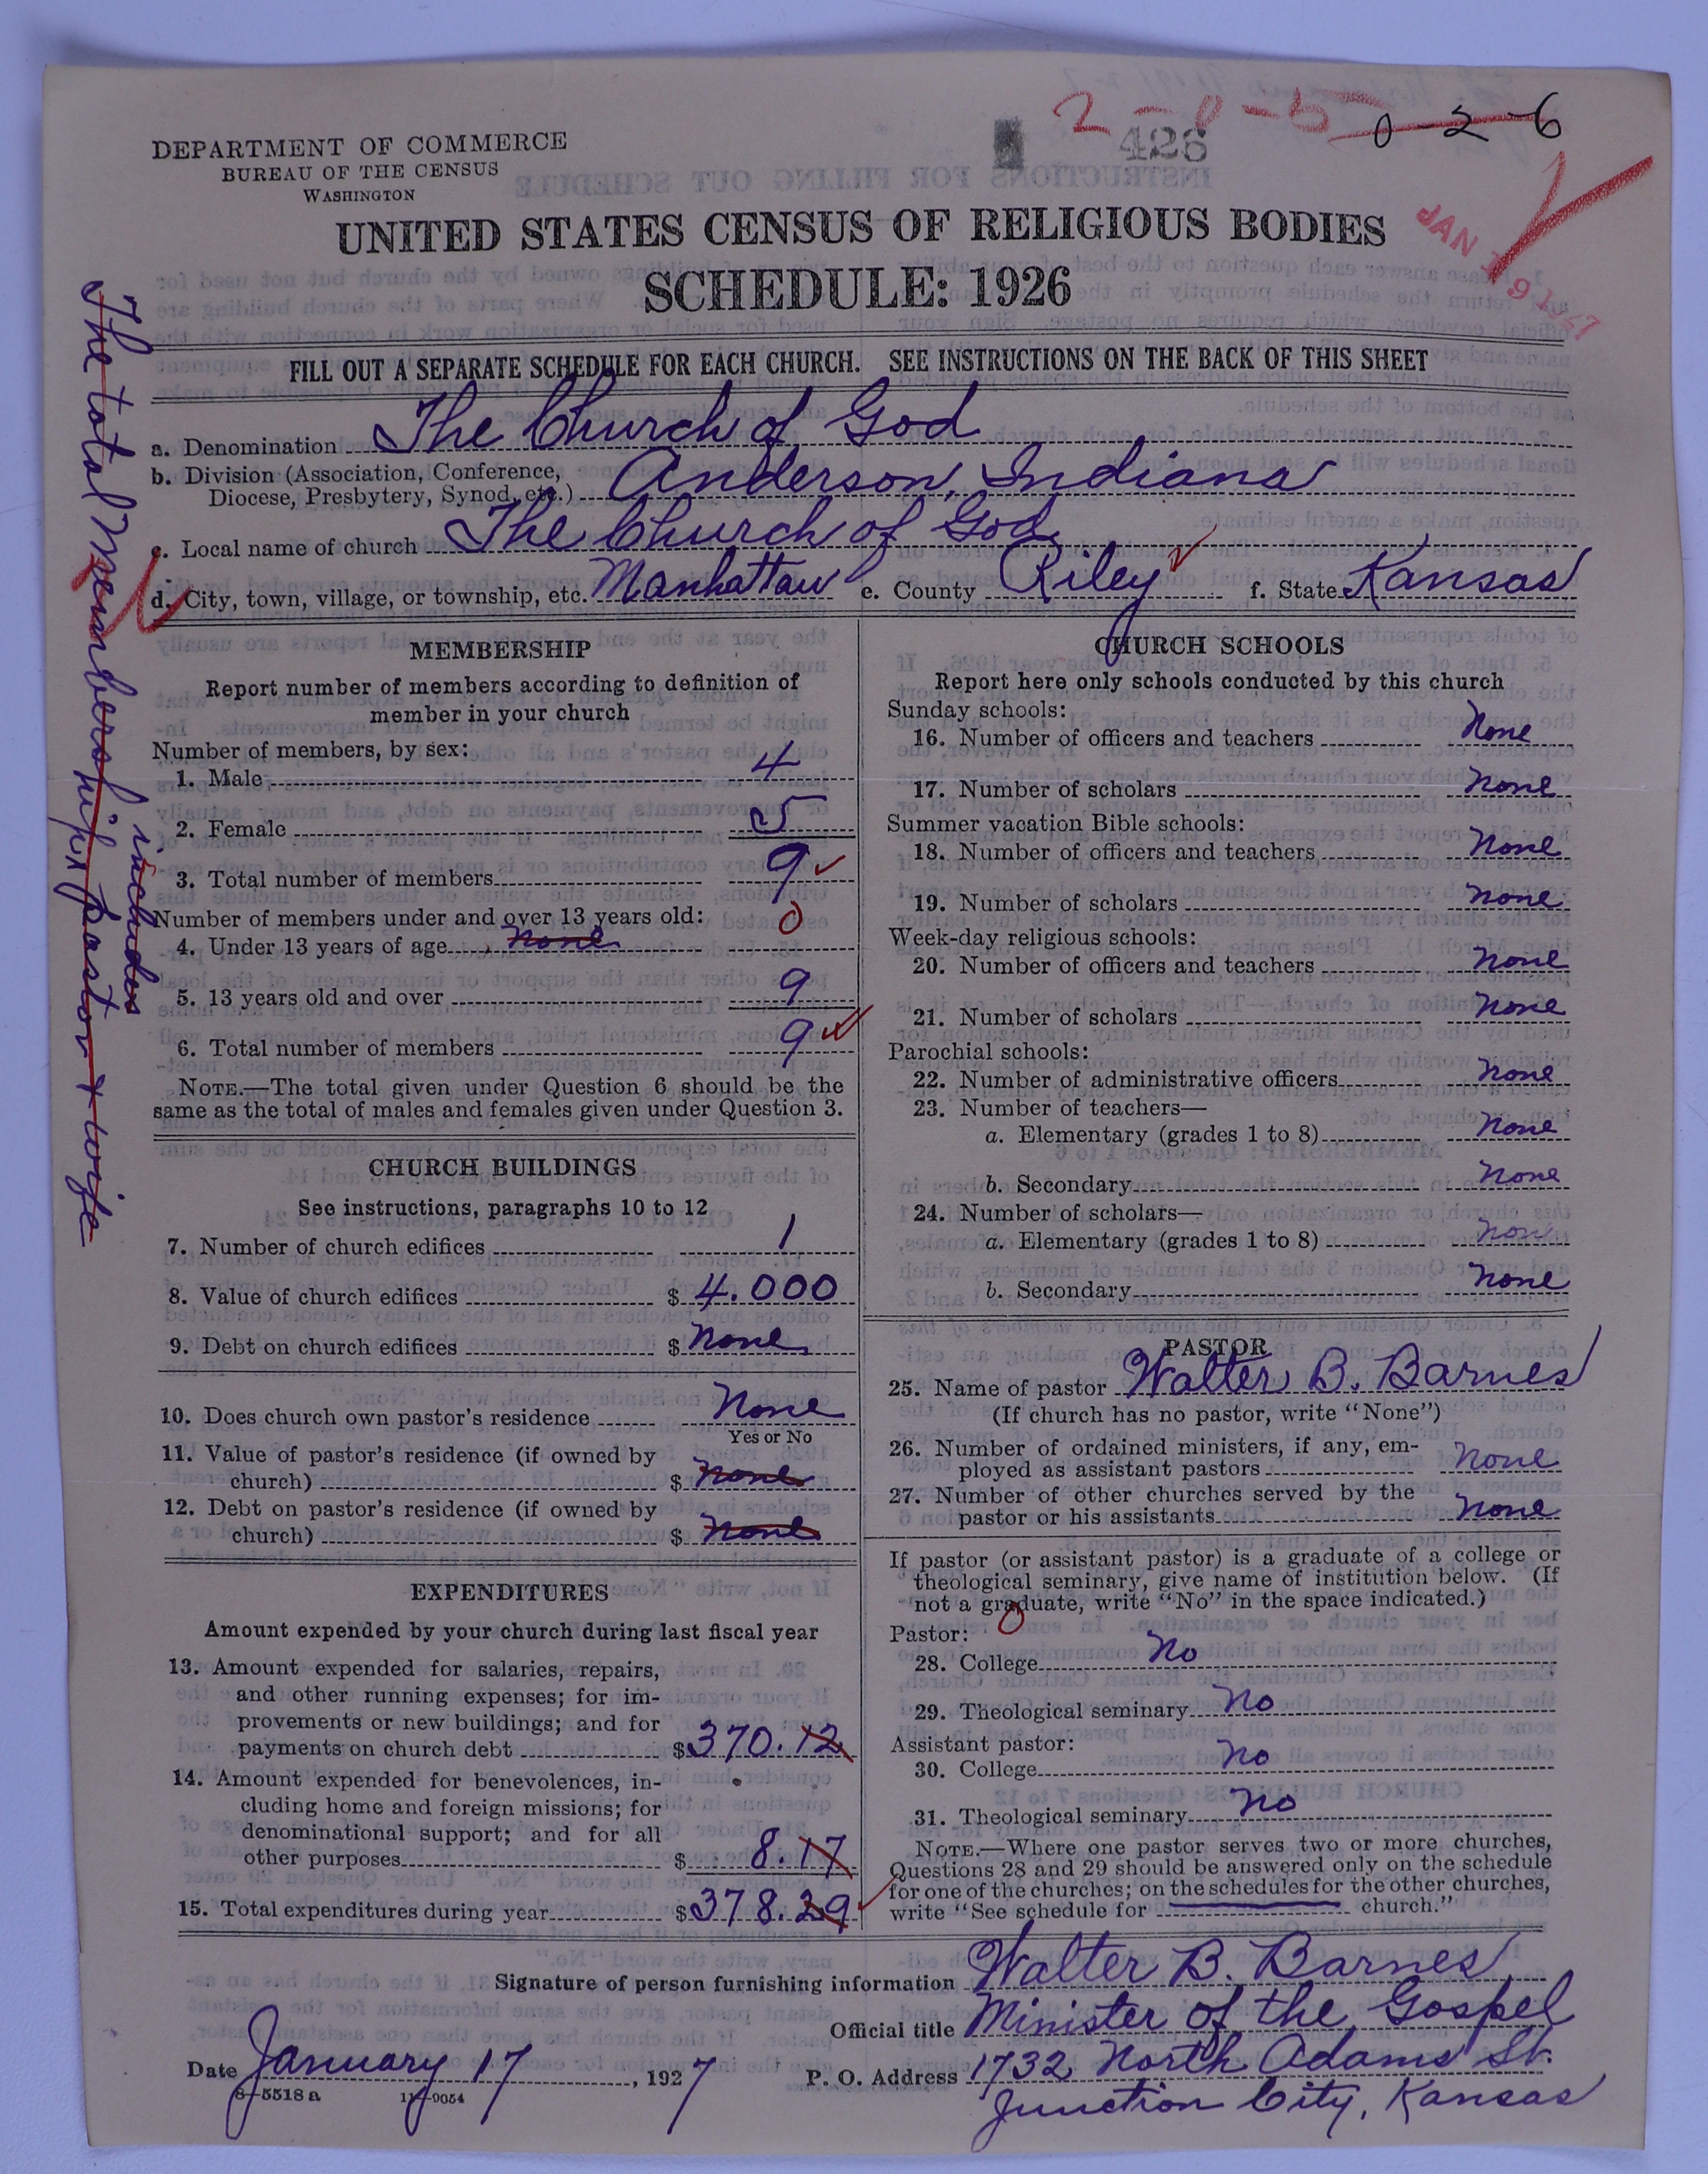 2-0-5 0-2-6
426
DEPARTMENT OF COMMERCE
BUREAU OF THE CENSUS
WASHINGTON
UNITED STATES CENSUS OF RELIGIOUS BODIES
SCHEDULE: 1926
JAN 19 1927
FILL OUT A SEPARATE SCHEDULE FOR EACH CHURCH. SEE INSTRUCTIONS ON THE BACK OF THIS SHEET
a. Denomination The Church of God
b. Division (Association, Conference,
Diocese, Presbytery, Synod, etc.) Anderson, Indiana
c. Local name of church The Church of God
d. City, town, village, or township, etc. Manhattan e. County Riley f. State Kansas
The total Membership includes pastor & wife
MEMBERSHIP
Report number of members according to definition of
member in your church
Number of members, by sex:
1. Male 4
2. Female 5
3. Total number of members 9
Number of members under and over 13 years old: 0
4. Under 13 years of age None
5. 13 years old and over 9
6. Total number of members 9
NOTE.—The total given under Question 6 should be the
same as the total of males and females given under Question 3.
CHURCH BUILDINGS
See instructions, paragraphs 10 to 12
7. Number of church edifices 1
8. Value of church edifices $ 4.000
9. Debt on church edifices $ None
10. Does church own pastor's residence None
Yes or No
11. Value of pastor's residence (if owned by
church) $ None
12. Debt on pastor's residence (if owned by
church) $ None
EXPENDITURES
Amount expended by your church during last fiscal year
13. Amount expended for salaries, repairs,
and other running expenses; for im-
provements or new buildings; and for
payments on church debt $370.12
14. Amount expended for benevolences, in-
cluding home and foreign missions; for
denominational support; and for all
other purposes $ 8.17
15. Total expenditures during year $378.29
CHURCH SCHOOLS
Report here only schools conducted by this church
Sunday schools:
16. Number of officers and teachers None
17. Number of scholars None
Summer vacation Bible schools:
18. Number of officers and teachers None
19. Number of scholars None
Week-day religious schools:
20. Number of officers and teachers None
21. Number of scholars None
Parochial schools:
22. Number of administrative officers None
23. Number of teachers—
a. Elementary (grades 1 to 8) None
b. Secondary None
24. Number of scholars—
a. Elementary (grades 1 to 8) None
b. Secondary None
PASTOR
25. Name of pastor Walter B. Barnes
(If church has no pastor, write "None")
26. Number of ordained ministers, if any, em-
ployed as assistant pastors None
27. Number of other churches served by the
pastor or his assistants None
If pastor (or assistant pastor) is a graduate of a college or
theological seminary, give name of institution below. (If
not a graduate, write "No" in the space indicated.)
Pastor: 0
28. College No
29. Theological seminary No
Assistant pastor:
30. College No
31. Theological seminary No
NOTE.—Where one pastor serves two or more churches,
Questions 28 and 29 should be answered only on the schedule
for one of the churches; on the schedules for the other churches,
write "See schedule for church."
Signature of person furnishing information Walter B. Barnes
Official title Minister of the Gospel
Date January 17, 1927 P. O. Address 1732 North Adams St.
8-5518 a 11-9054 Junction City, Kansas